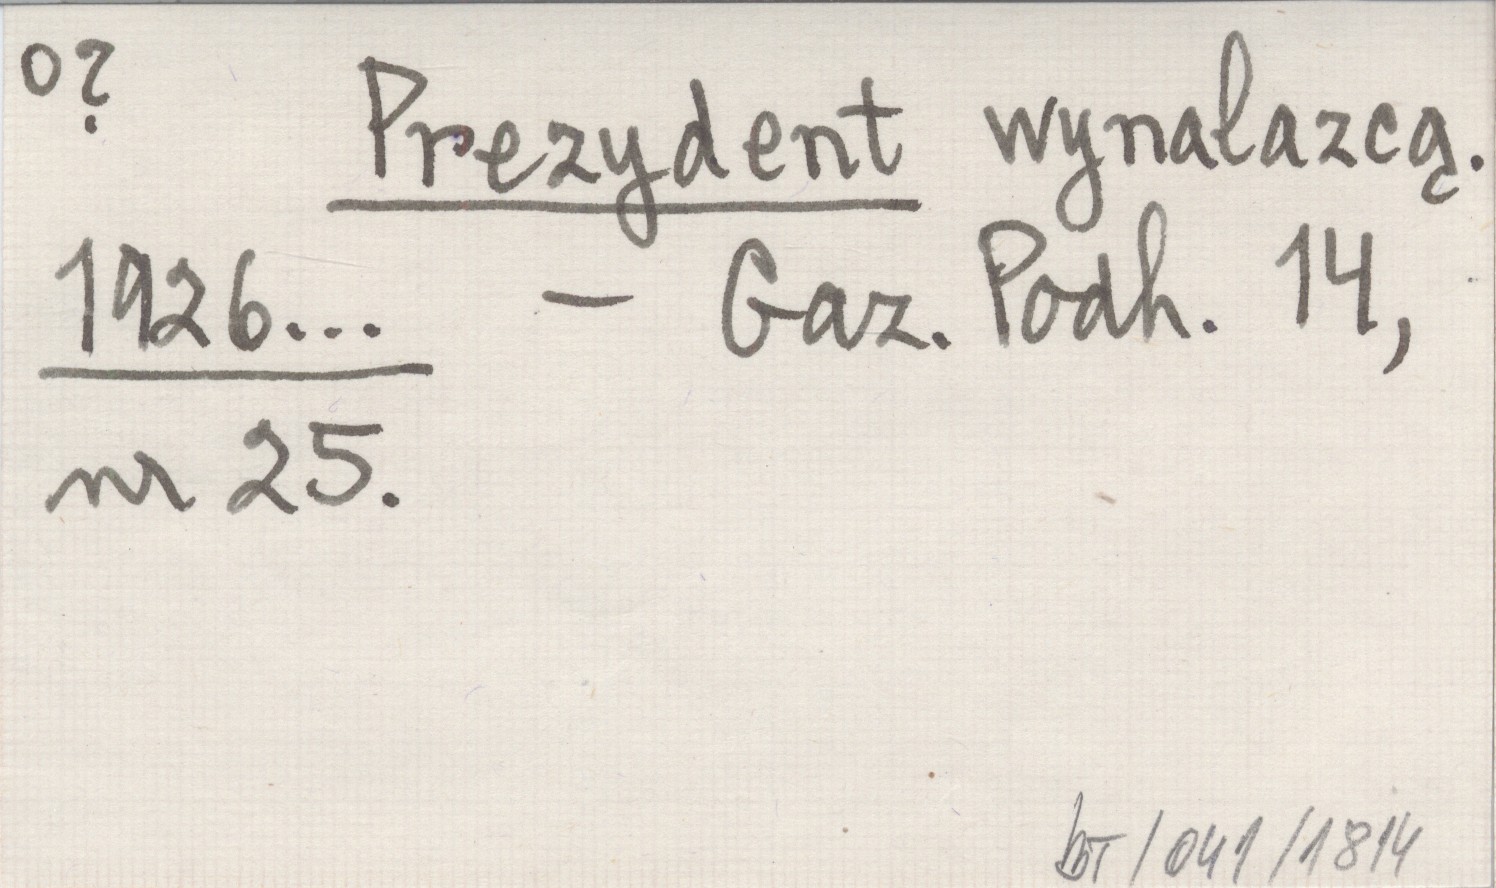 o?
Prezydent wynalazcą.
1926... – Gaz. Podh. 14,
nr 25.
bT/041/1814